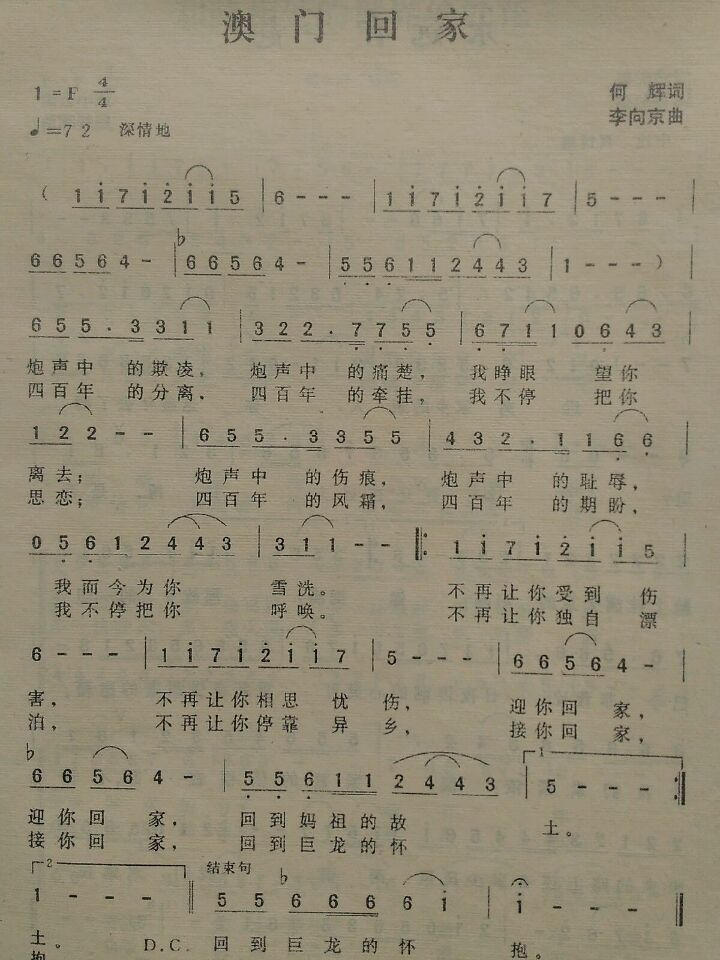 澳门回家
1=F 4/4
何 辉词
♩=72 深情地
李向京曲
( 1 i 7 i 2 i i 5 | 6 - - - | 1 i 7 i 2 i i 7 | 5 - - - |
6 6 5 6 4 - | ♭6 6 5 6 4 - | 5 5 6 1 1 2 4 4 3 | 1 - - - ) |
6 5 5 . 3 3 1 1 | 3 2 2 . 7 7 5 5 | 6 7 1 1 0 6 4 3 |
炮声中 的欺凌, 炮声中 的痛楚, 我睁眼 望你
四百年 的分离, 四百年 的牵挂, 我不停 把你
1 2 2 - - | 6 5 5 . 3 3 5 5 | 4 3 2 . 1 1 6 6 |
离去; 炮声中 的伤痕, 炮声中 的耻辱,
思恋; 四百年 的风霜, 四百年 的期盼,
0 5 6 1 2 4 4 3 | 3 1 1 - - ‖: 1 i 7 i 2 i i 5 |
我而今为你 雪洗。 不再让你受到 伤
我不停把你 呼唤。 不再让你独自 漂
6 - - - | 1 i 7 i 2 i i 7 | 5 - - - | 6 6 5 6 4 - |
害, 不再让你相思 忧 伤, 迎你回 家,
泊, 不再让你停靠 异 乡, 接你回 家,
♭6 6 5 6 4 - | 5 5 6 1 1 2 4 4 3 | 1 5 - - - :‖
迎你回 家, 回到妈祖的故 土。
接你回 家, 回到巨龙的怀
2 结束句
1 - - - ‖ 5 5 ♭6 6 6 6 i | i - - - ‖
土。 D.C. 回到巨龙的怀 抱。
抱